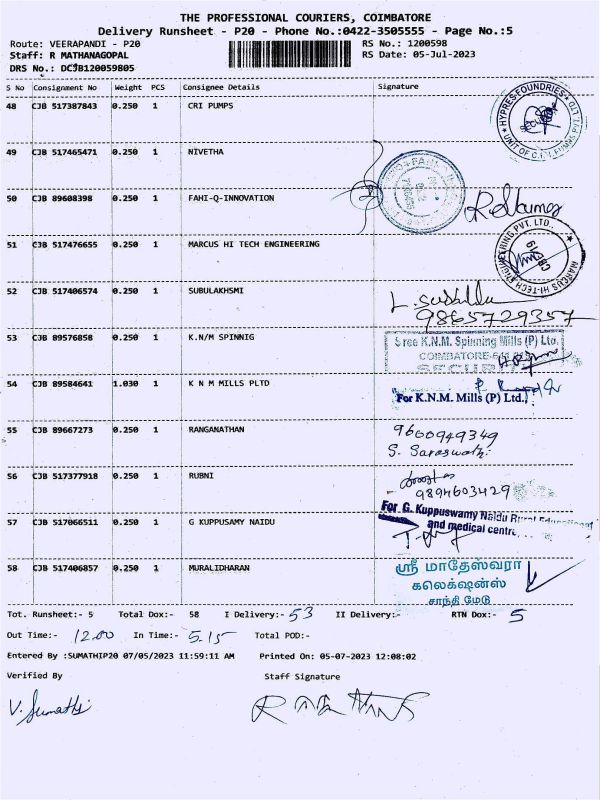 THE PROFESSIONAL COURIERS, COIMBATORE
Delivery Runsheet - P20 - Phone No.:0422-3505555 - Page No.:5
Route: VEERAPANDI - P20
RS No.: 1200598
Staff: R MATHANAGOPAL
RS Date: 05-Jul-2023
DRS No.: DCJB120059805
S No Consignment No Weight PCS Consignee Details Signature
48 CJB 517387843 0.250 1 CRI PUMPS
HYPRES FOUNDRIES
UNIT OF C.R.I. PUMPS PVT. LTD
49 CJB 517465471 0.250 1 NIVETHA
50 CJB 89608398 0.250 1 FAHI-Q-INNOVATION
51 CJB 517476655 0.250 1 MARCUS HI TECH ENGINEERING
MARCUS HI-TECH ENGINEERING PVT. LTD.
52 CJB 517406574 0.250 1 SUBULAKHSMI
9865729357
53 CJB 89576858 0.250 1 K.N/M SPINNIG
Sree K.N.M. Spinning Mills (P) Ltd.
COIMBATORE
54 CJB 89584641 1.030 1 K N M MILLS PLTD
For K.N.M. Mills (P) Ltd.,
55 CJB 89667273 0.250 1 RANGANATHAN
9600949349
S. Saraswathi
56 CJB 517377918 0.250 1 RUBNI
9894603429
57 CJB 517066511 0.250 1 G KUPPUSAMY NAIDU
For G. Kuppuswamy Naidu Rural Educational
and medical centre
58 CJB 517406857 0.250 1 MURALIDHARAN
ஸ்ரீ மாதேஸ்வரா
கலெக்ஷன்ஸ்
சாந்தி மேடு
Tot. Runsheet:- 5 Total Dox:- 58 I Delivery:- 53 II Delivery:- RTN Dox:- 5
Out Time:- 12.00 In Time:- 5.15 Total POD:-
Entered By :SUMATHIP20 07/05/2023 11:59:11 AM Printed On: 05-07-2023 12:08:02
Verified By Staff Signature
V. Sumathi